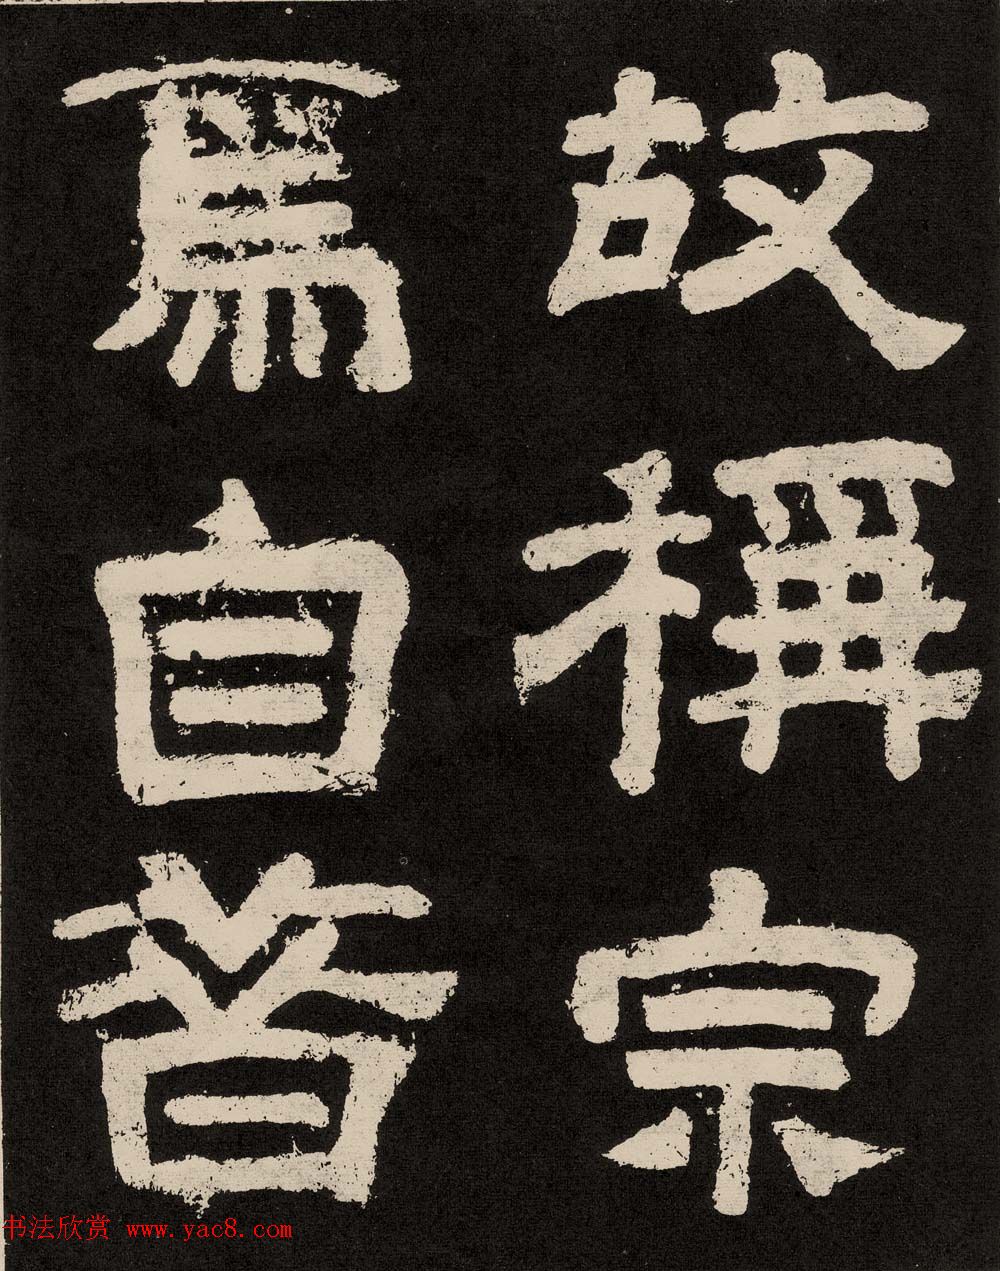 故稱宗
焉自昔
书法欣赏 www.yac8.com